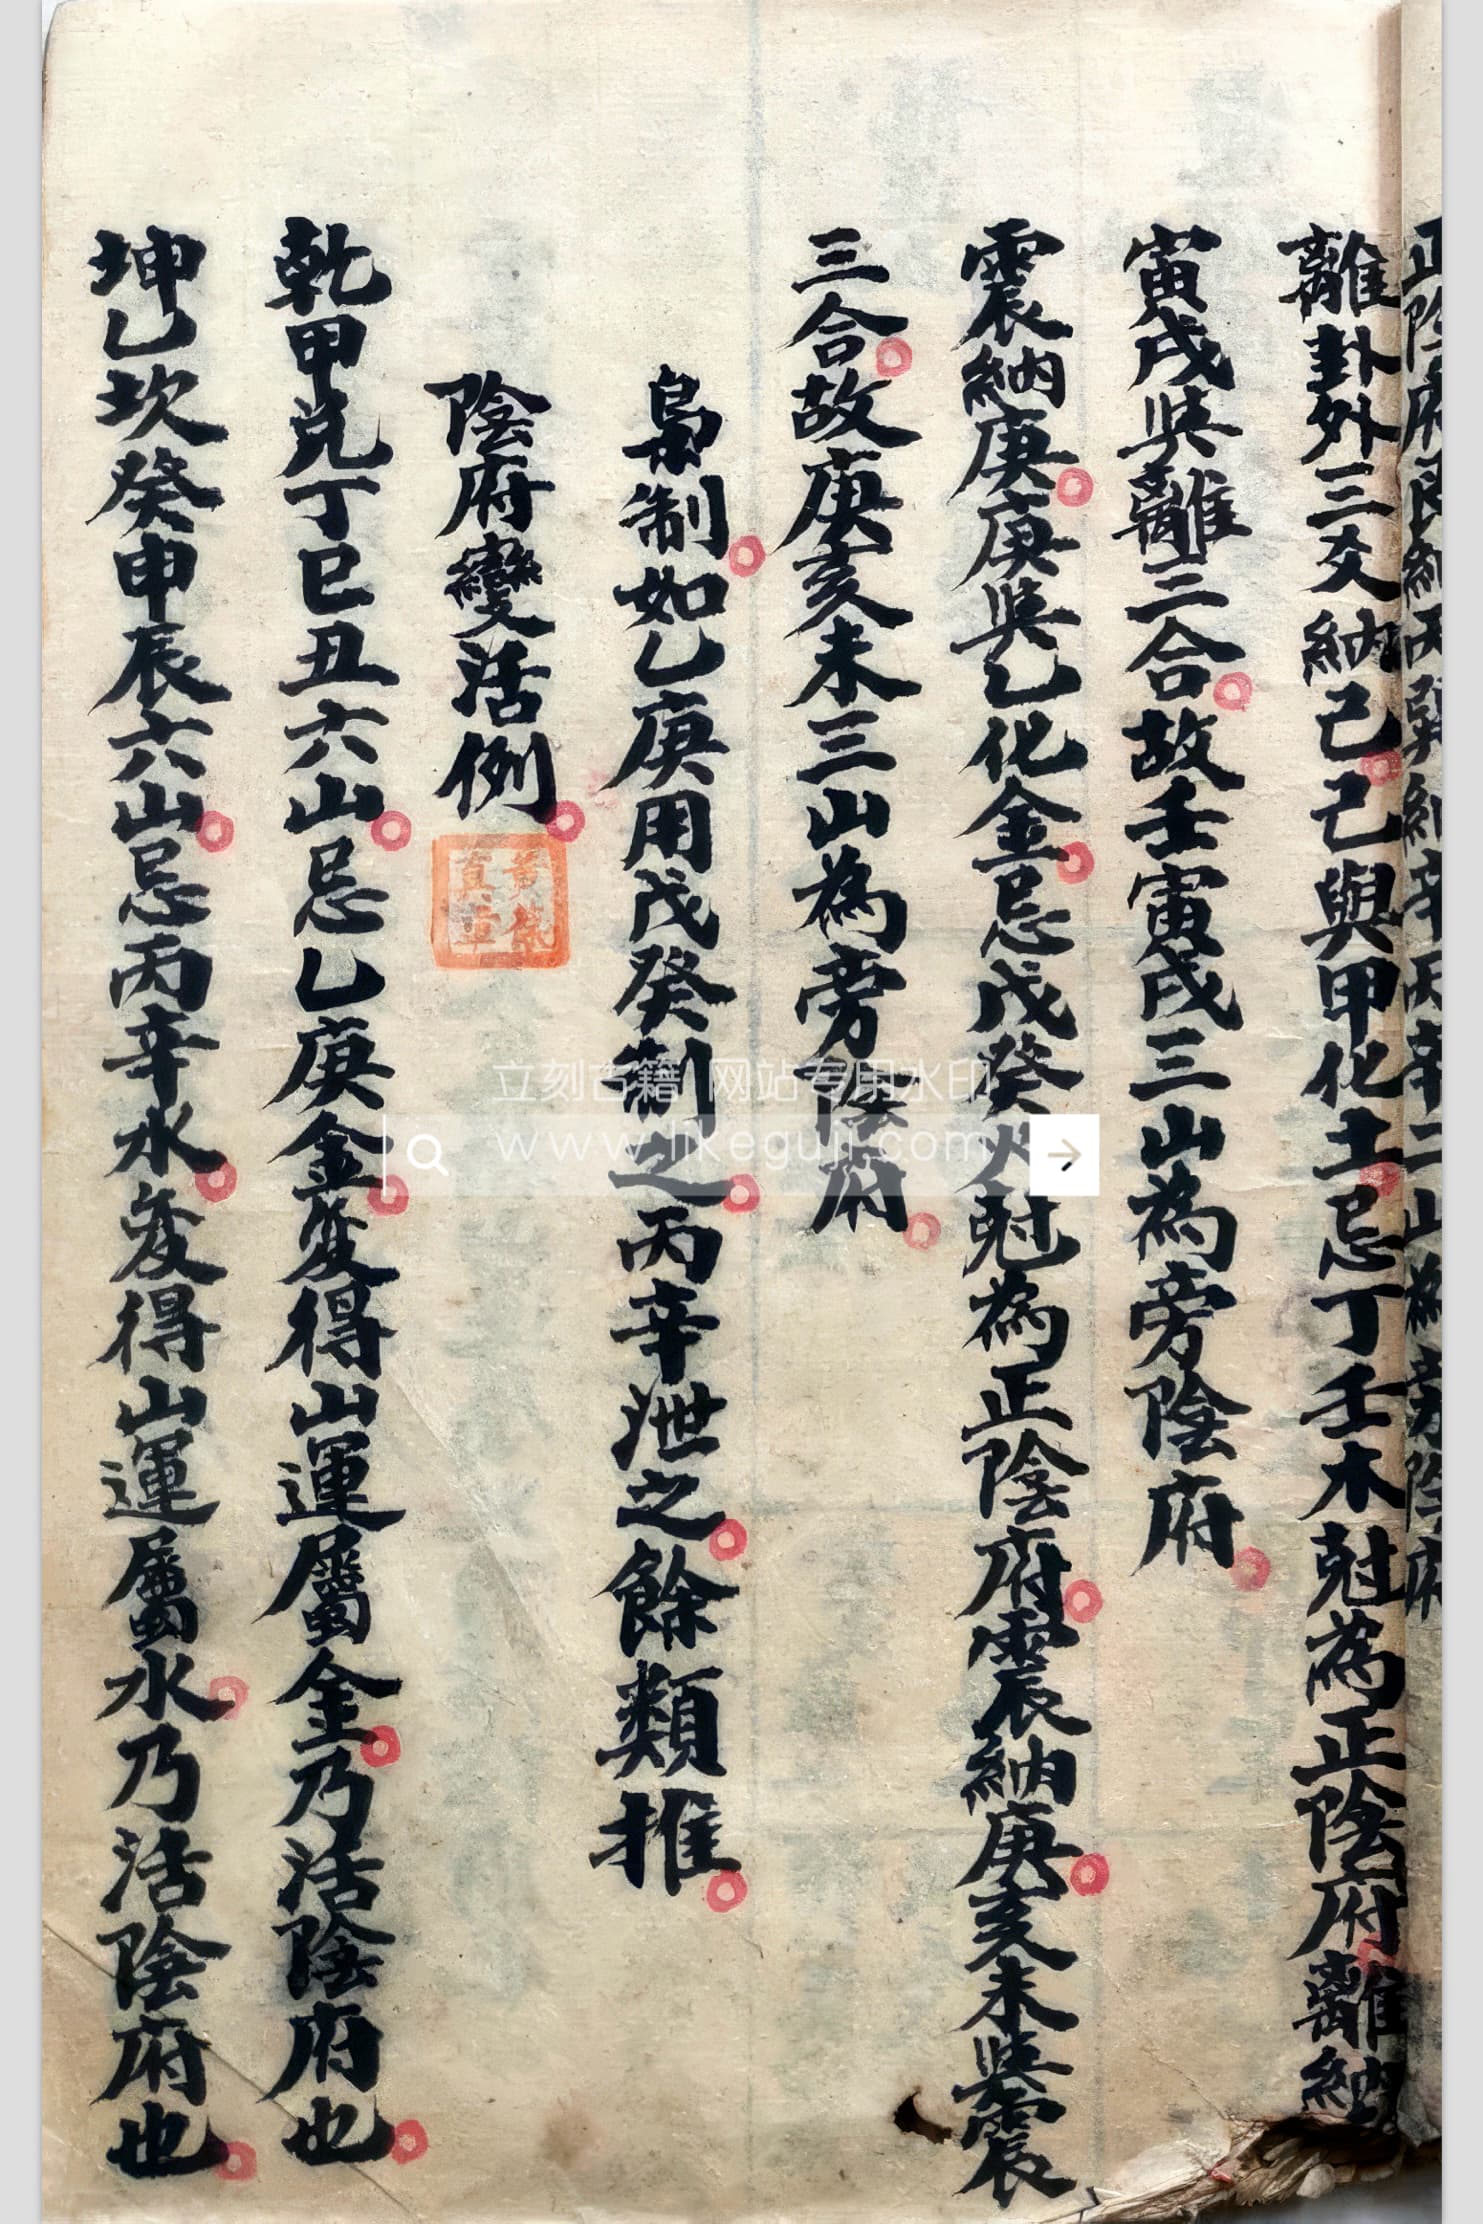 正陰府艮納丙巽納辛丙辛二山為旁陰府
離卦外三爻納己己與甲化土忌丁壬木尅為正陰府離納
寅戌與離三合故壬寅戌三山為旁陰府
震納庚庚與乙化金忌戊癸火尅為正陰府震納庚亥未與震
三合故庚亥未三山為旁陰府
梟制如乙庚用戊癸制之丙辛泄之餘類推
陰府變活例
乾甲兌丁巳丑六山忌乙庚金変得山運屬金乃活陰府也
坤乙坎癸申辰六山忌丙辛水変得山運屬水乃活陰府也
立刻古籍 网站专用水印
www.likeguji.com